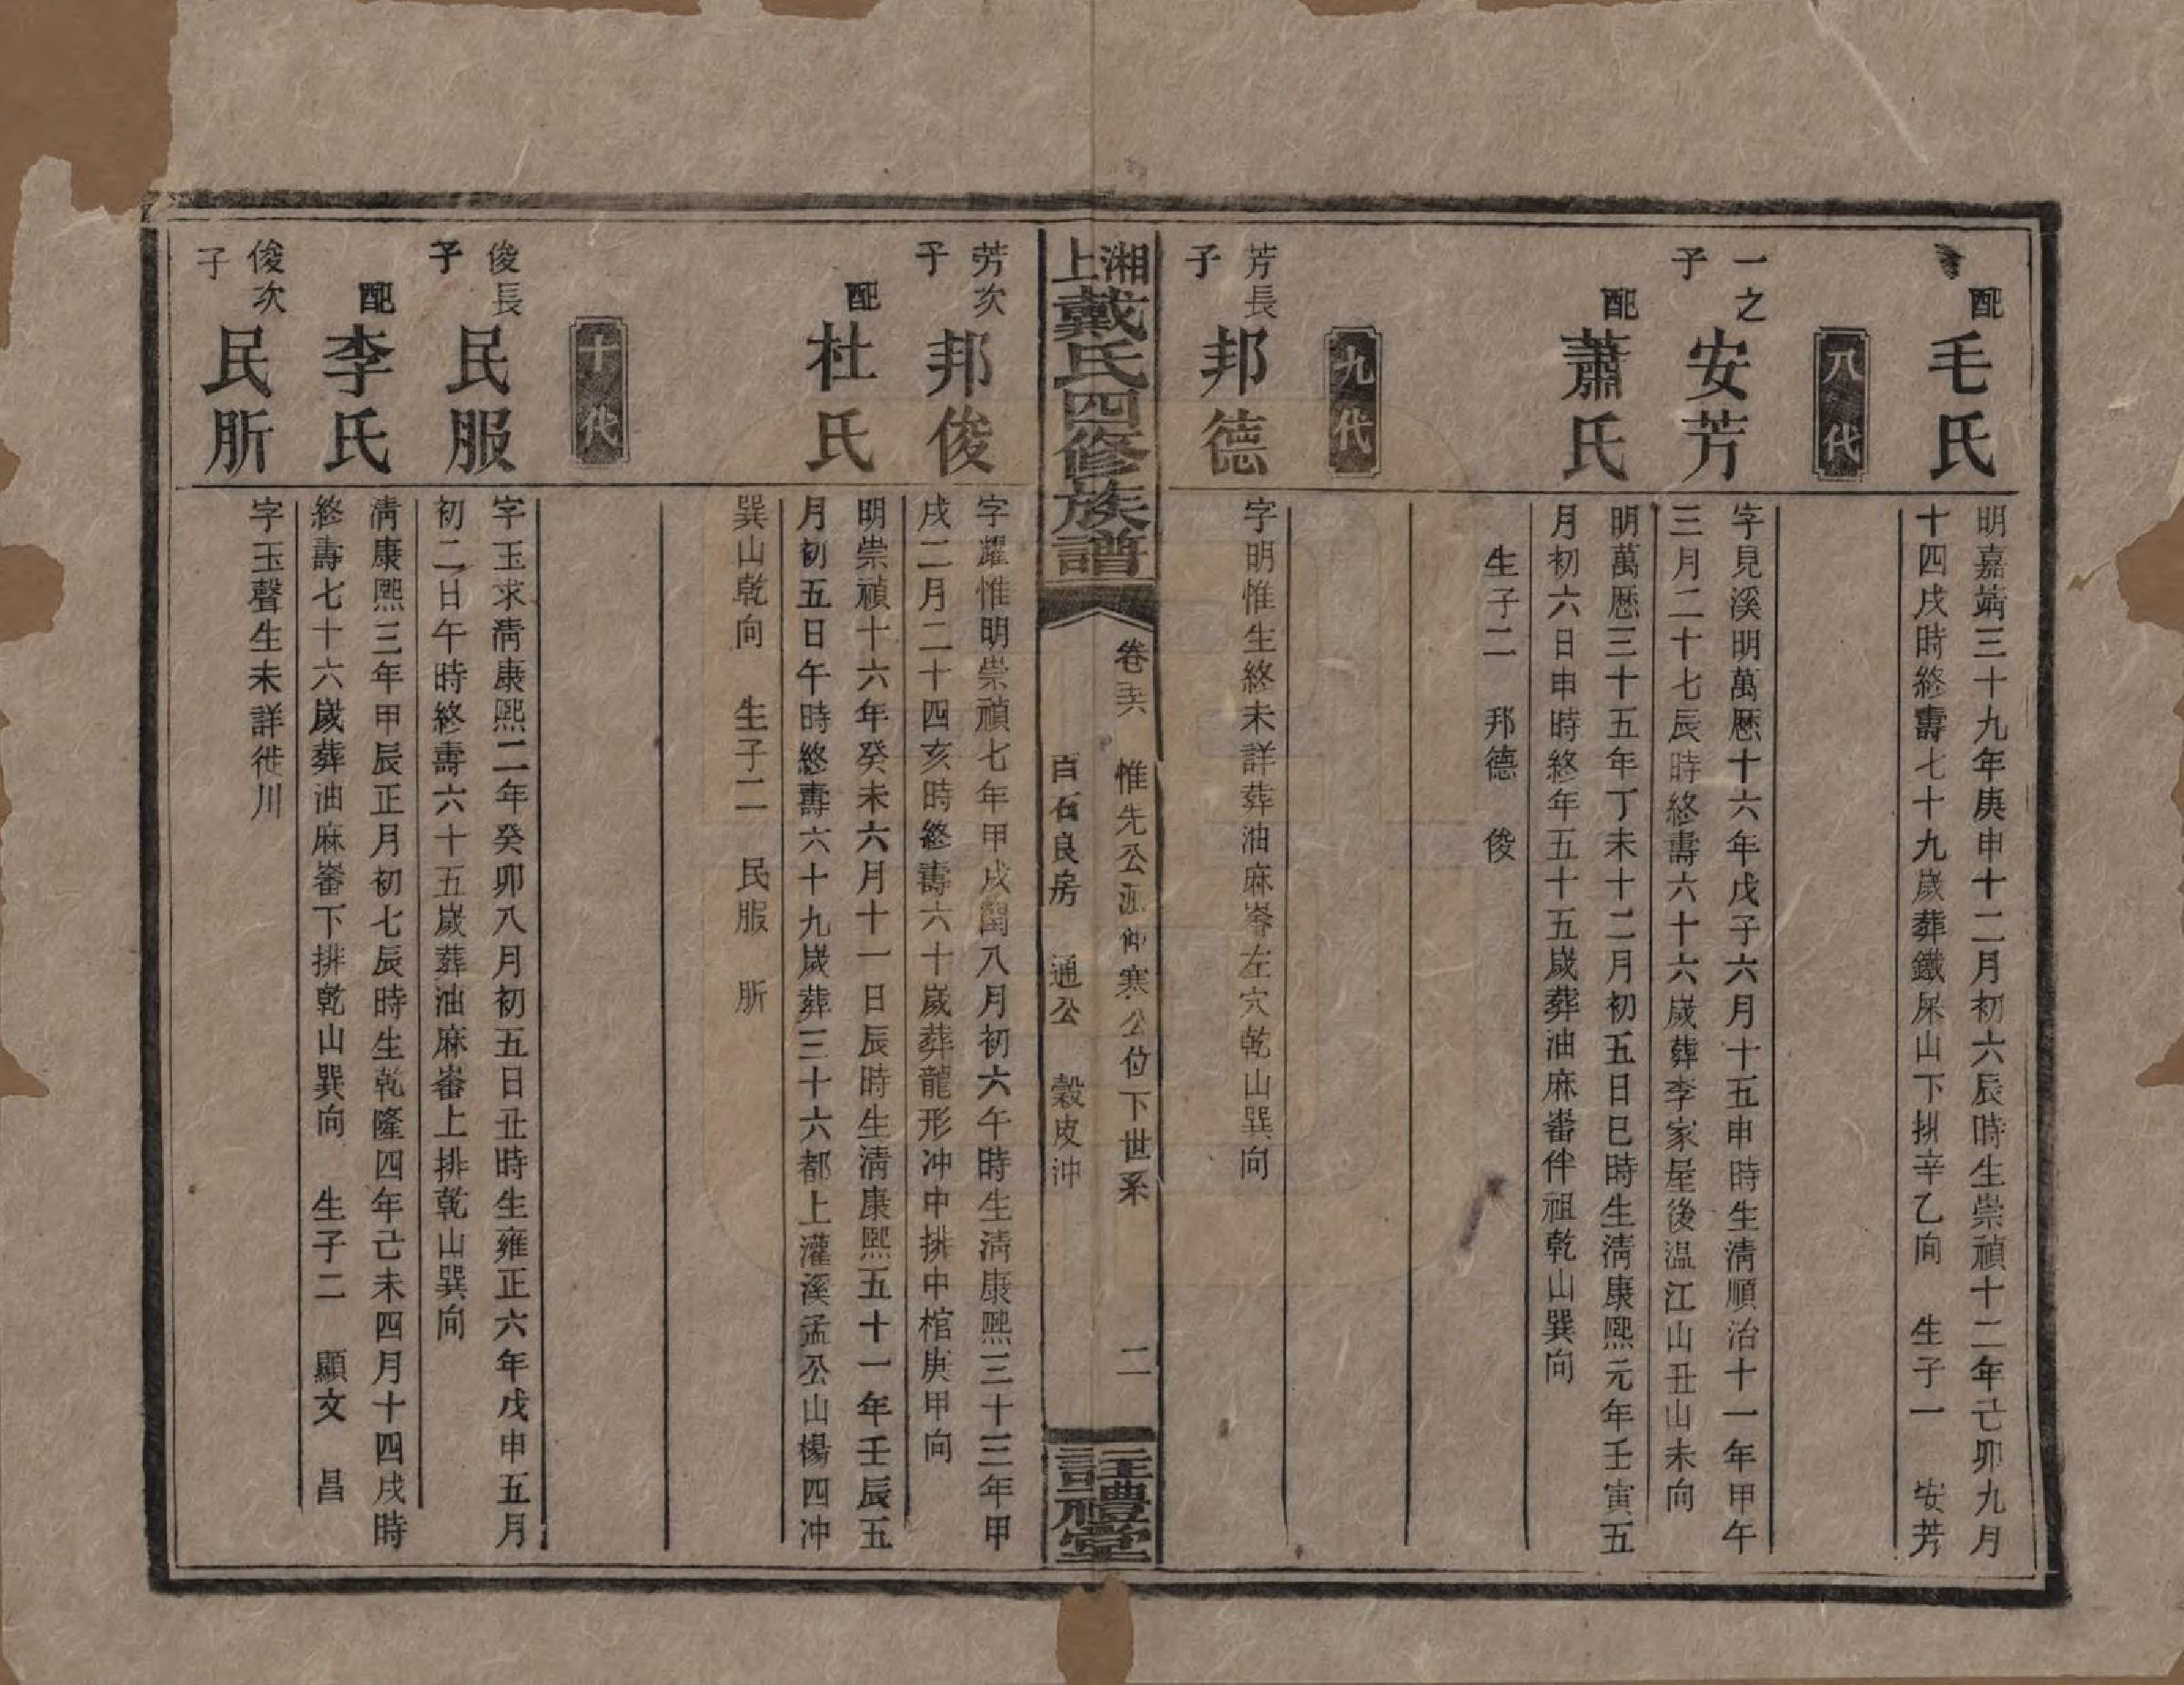 配毛氏
明嘉靖三十九年庚申十二月初六辰時生崇禎十二年己卯九月
十四戌時終壽七十九歲葬鐵屎山下排辛乙向　生子一　安芳
八代
一之子安芳
字見溪明萬厯十六年戊子六月十五申時生淸順治十一年甲午
三月二十七辰時終壽六十六歲葬李家屋後温江山丑山未向
配蕭氏
明萬厯三十五年丁未十二月初五日巳時生淸康熙元年壬寅五
月初六日申時終年五十五歲葬油麻崙伴祖乾山巽向
生子二　邦德　俊
九代
芳長子邦德
字明惟生終未詳葬油麻崙左穴乾山巽向
湘上戴氏四修族譜
卷　惟先公派仰寒公位下世系
百石良房　通公　穀皮沖
二
註禮堂
芳次子邦俊
字耀惟明崇禎七年甲戌閏八月初六午時生淸康熙三十三年甲
戌二月二十四亥時終壽六十歲葬龍形冲中排中棺庚甲向
配杜氏
明崇禎十六年癸未六月十一日辰時生淸康熙五十一年壬辰五
月初五日午時終壽六十九歲葬三十六都上灌溪孟公山楊四冲
巽山乾向　生子二　民服　肵
十代
俊長子民服
字玉求淸康熙二年癸卯八月初五日丑時生雍正六年戊申五月
初二日午時終壽六十五歲葬油麻崙上排乾山巽向
配李氏
淸康熙三年甲辰正月初七辰時生乾隆四年己未四月十四戌時
終壽七十六歲葬油麻崙下排乾山巽向　生子二　顯文　昌
俊次子民肵
字玉聲生未詳徙川